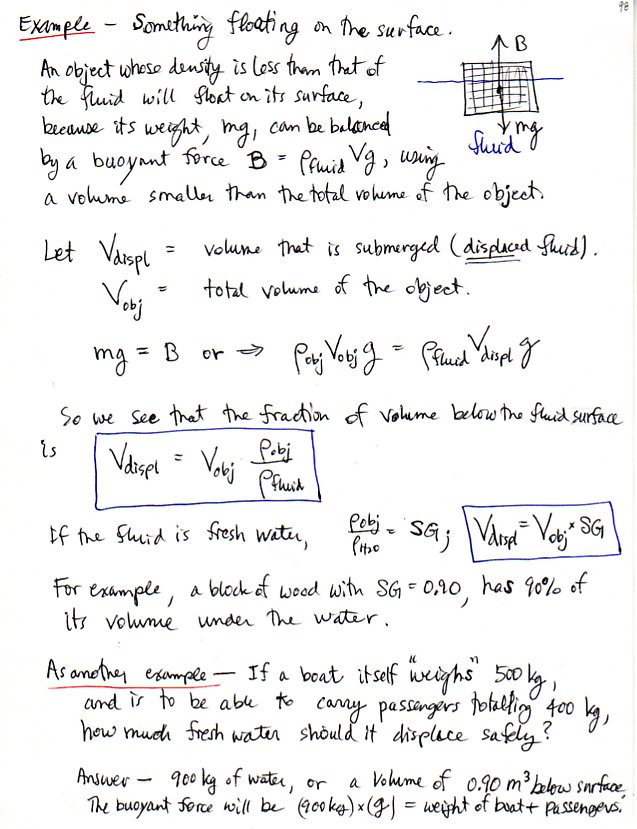 98
Example - Something floating on the surface.
B
An object whose density is less than that of
the fluid will float on its surface,
because its weight, mg, can be balanced
mg
fluid
by a buoyant force B = ρfluid Vg, using
a volume smaller than the total volume of the object.
Let Vdispl = volume that is submerged (displaced fluid).
Vobj = total volume of the object.
mg = B or ⇒ ρobj Vobj g = ρfluid Vdispl g
So we see that the fraction of volume below the fluid surface
is Vdispl = Vobj ρobj/ρfluid
If the fluid is fresh water, ρobj/ρH2O = SG; Vdispl = Vobj × SG
For example, a block of wood with SG = 0.90, has 90% of
its volume under the water.
As another example - If a boat itself "weighs" 500 kg,
and is to be able to carry passengers totalling 400 kg,
how much fresh water should it displace safely?
Answer - 900 kg of water, or a volume of 0.90 m³ below surface.
The buoyant force will be (900 kg)×(g) = weight of boat + passengers.